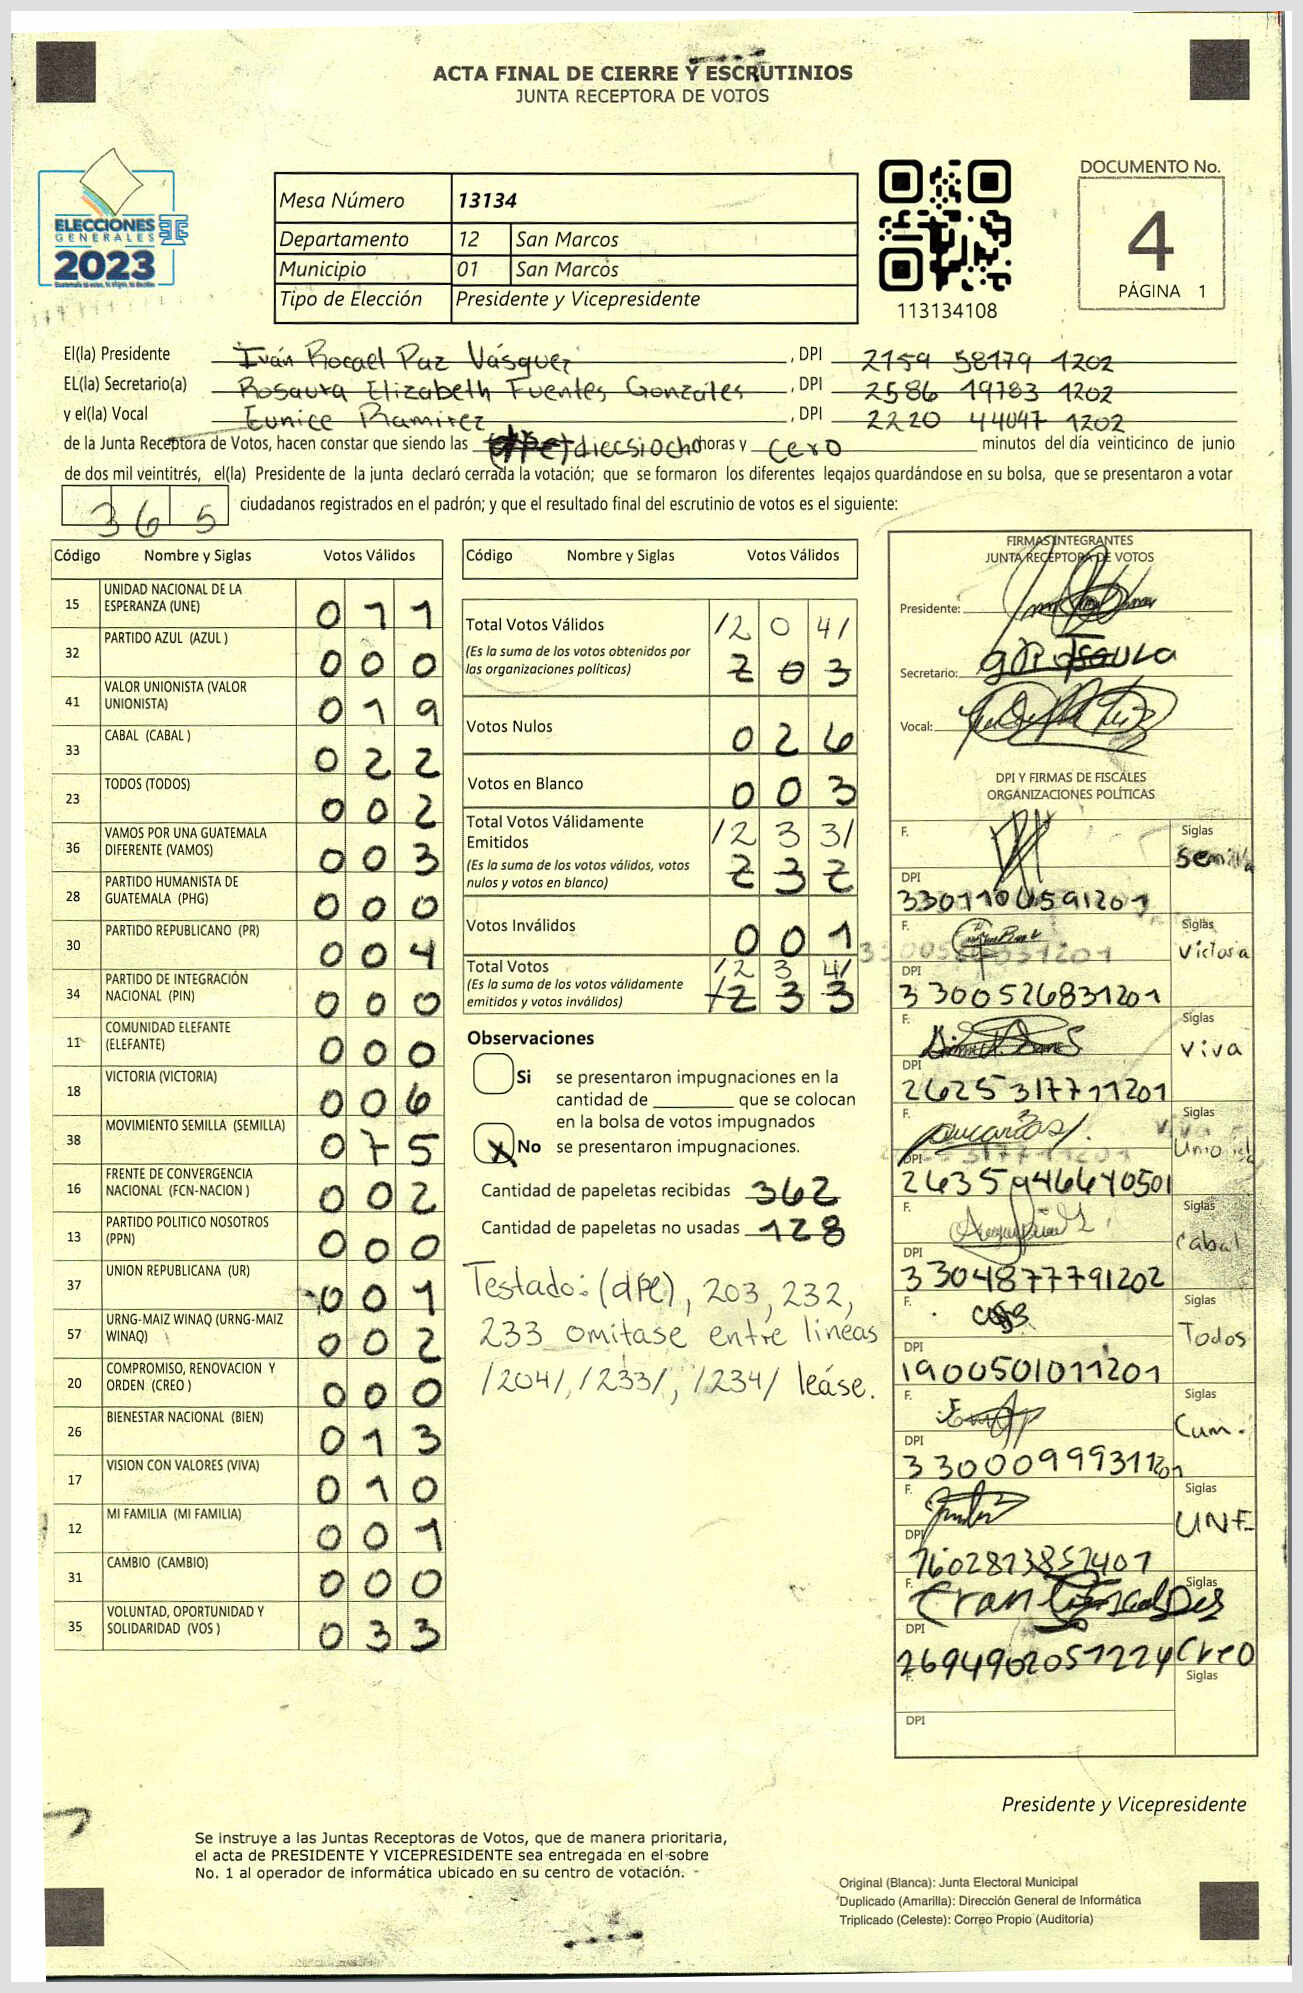 ACTA FINAL DE CIERRE Y ESCRUTINIOS
JUNTA RECEPTORA DE VOTOS
ELECCIONES
GENERALES
2023
Mesa Número 13134
Departamento 12 San Marcos
Municipio 01 San Marcos
Tipo de Elección Presidente y Vicepresidente
113134108
DOCUMENTO No.
4
PÁGINA 1
El(la) Presidente Iván Rocael Paz Vásquez , DPI 2159 58179 1202
EL(la) Secretario(a) Rosaura Elizabeth Fuentes Gonzáles , DPI 2586 19783 1202
y el(la) Vocal Eunice Ramirez , DPI 2220 44047 1202
de la Junta Receptora de Votos, hacen constar que siendo las (dpe) diecsiocho horas y cero minutos del día veinticinco de junio
de dos mil veintitrés, el(la) Presidente de la junta declaró cerrada la votación; que se formaron los diferentes legajos guardándose en su bolsa, que se presentaron a votar
365 ciudadanos registrados en el padrón; y que el resultado final del escrutinio de votos es el siguiente:
Código Nombre y Siglas Votos Válidos
15 UNIDAD NACIONAL DE LA ESPERANZA (UNE) 011
32 PARTIDO AZUL (AZUL ) 000
41 VALOR UNIONISTA (VALOR UNIONISTA) 019
33 CABAL (CABAL ) 022
23 TODOS (TODOS) 002
36 VAMOS POR UNA GUATEMALA DIFERENTE (VAMOS) 003
28 PARTIDO HUMANISTA DE GUATEMALA (PHG) 000
30 PARTIDO REPUBLICANO (PR) 004
34 PARTIDO DE INTEGRACIÓN NACIONAL (PIN) 000
11 COMUNIDAD ELEFANTE (ELEFANTE) 000
18 VICTORIA (VICTORIA) 006
38 MOVIMIENTO SEMILLA (SEMILLA) 075
16 FRENTE DE CONVERGENCIA NACIONAL (FCN-NACION ) 002
13 PARTIDO POLITICO NOSOTROS (PPN) 000
37 UNION REPUBLICANA (UR) 001
57 URNG-MAIZ WINAQ (URNG-MAIZ WINAQ) 002
20 COMPROMISO, RENOVACION Y ORDEN (CREO ) 000
26 BIENESTAR NACIONAL (BIEN) 013
17 VISION CON VALORES (VIVA) 010
12 MI FAMILIA (MI FAMILIA) 001
31 CAMBIO (CAMBIO) 000
35 VOLUNTAD, OPORTUNIDAD Y SOLIDARIDAD (VOS ) 033
Código Nombre y Siglas Votos Válidos
Total Votos Válidos /204/
(Es la suma de los votos obtenidos por
las organizaciones políticas) 203
Votos Nulos 026
Votos en Blanco 003
Total Votos Válidamente
Emitidos /233/
(Es la suma de los votos válidos, votos
nulos y votos en blanco) 232
Votos Inválidos 001
Total Votos /234/
(Es la suma de los votos válidamente
emitidos y votos inválidos) 233
Observaciones
Si se presentaron impugnaciones en la
cantidad de ________ que se colocan
en la bolsa de votos impugnados
X No se presentaron impugnaciones.
Cantidad de papeletas recibidas 362
Cantidad de papeletas no usadas 128
Testado: (dpe), 203, 232,
233 omitase entre lineas
/204/, /233/, /234/ leáse.
FIRMAS INTEGRANTES
JUNTA RECEPTORA DE VOTOS
Presidente:
Secretario:
Vocal:
DPI Y FIRMAS DE FISCALES
ORGANIZACIONES POLÍTICAS
F. Siglas Semilla
DPI 3301106591201
F. Siglas Victoria
DPI 3300526831201
F. Siglas Viva
DPI 2625317711201
F. Siglas Unionista
DPI 2635946640501
F. Siglas Cabal
DPI 3304877791202
F. Siglas Todos
DPI 1900501011201
F. Siglas Cum.
DPI 3300099931201
F. Siglas UNE
DPI 1602873851401
F. Siglas Creo
DPI 2694902051224
F. Siglas
DPI
Presidente y Vicepresidente
Se instruye a las Juntas Receptoras de Votos, que de manera prioritaria,
el acta de PRESIDENTE Y VICEPRESIDENTE sea entregada en el sobre
No. 1 al operador de informática ubicado en su centro de votación.
Original (Blanca): Junta Electoral Municipal
Duplicado (Amarilla): Dirección General de Informática
Triplicado (Celeste): Correo Propio (Auditoría)